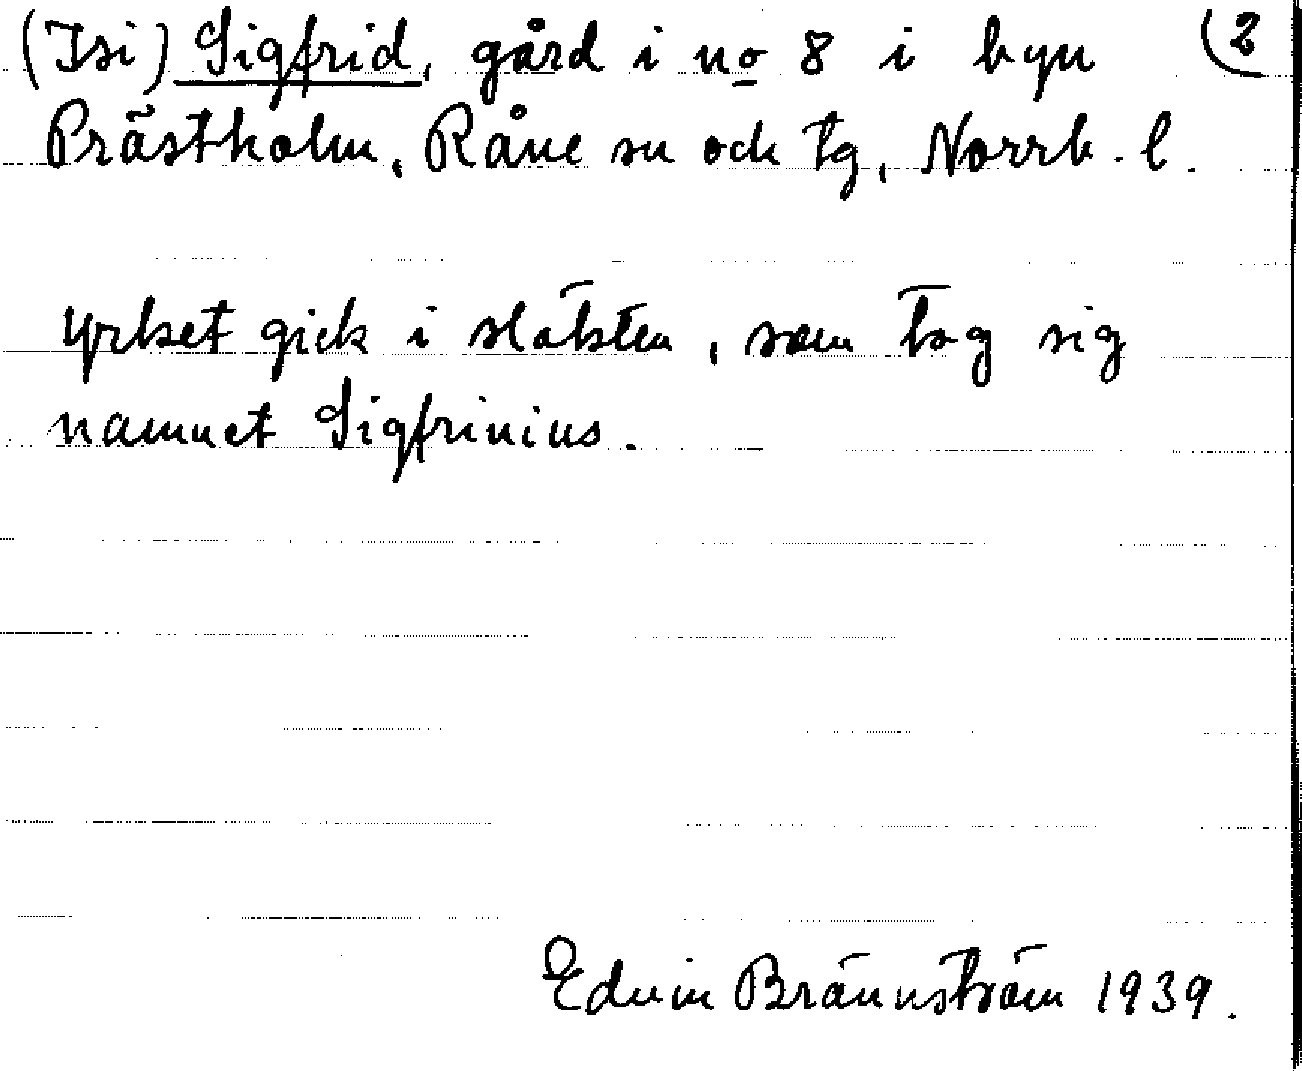 (Isi) Sigfrid, gård i no 8 i byn (2
Prästholm, Råne sn och tg, Norrb. l.
Yrket gick i släkten, som tog sig
namnet Sigfrinius.
Edvin Brännström 1939.